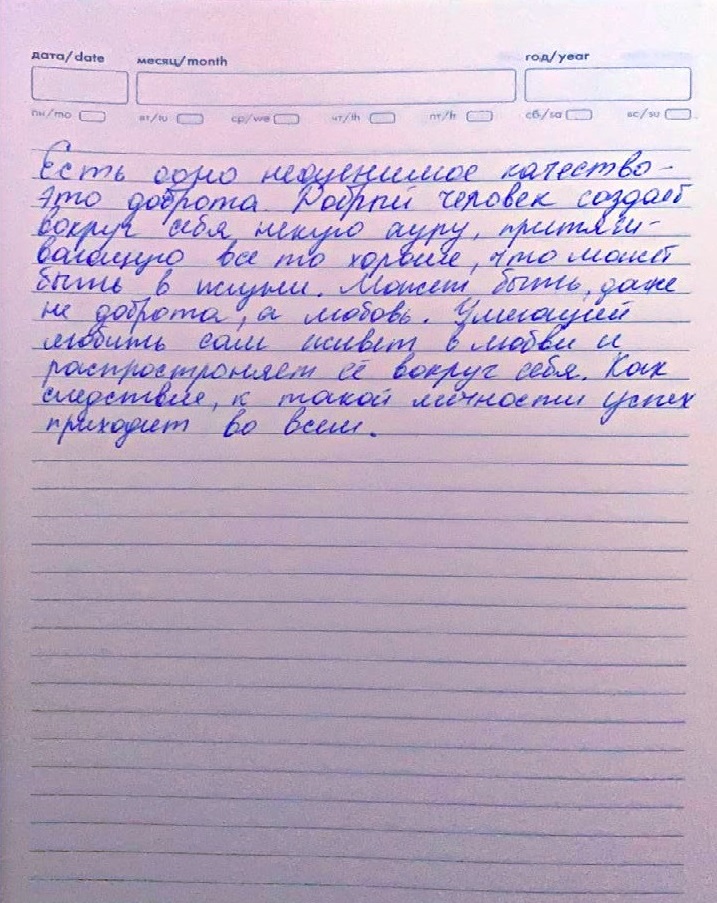 дата/date месяц/month год/year
пн/mo вт/tu ср/we чт/th пт/fr сб/sa вс/su
Есть одно неоценимое качество -
это доброта. Добрый человек создаёт
вокруг себя некую ауру, притяги-
вающую все то хорошее, что может
быть в жизни. Может быть, даже
не доброта, а любовь. Умеющий
любить сам живет в любви и
распространяет её вокруг себя. Как
следствие, к такой личности успех
приходит во всем.